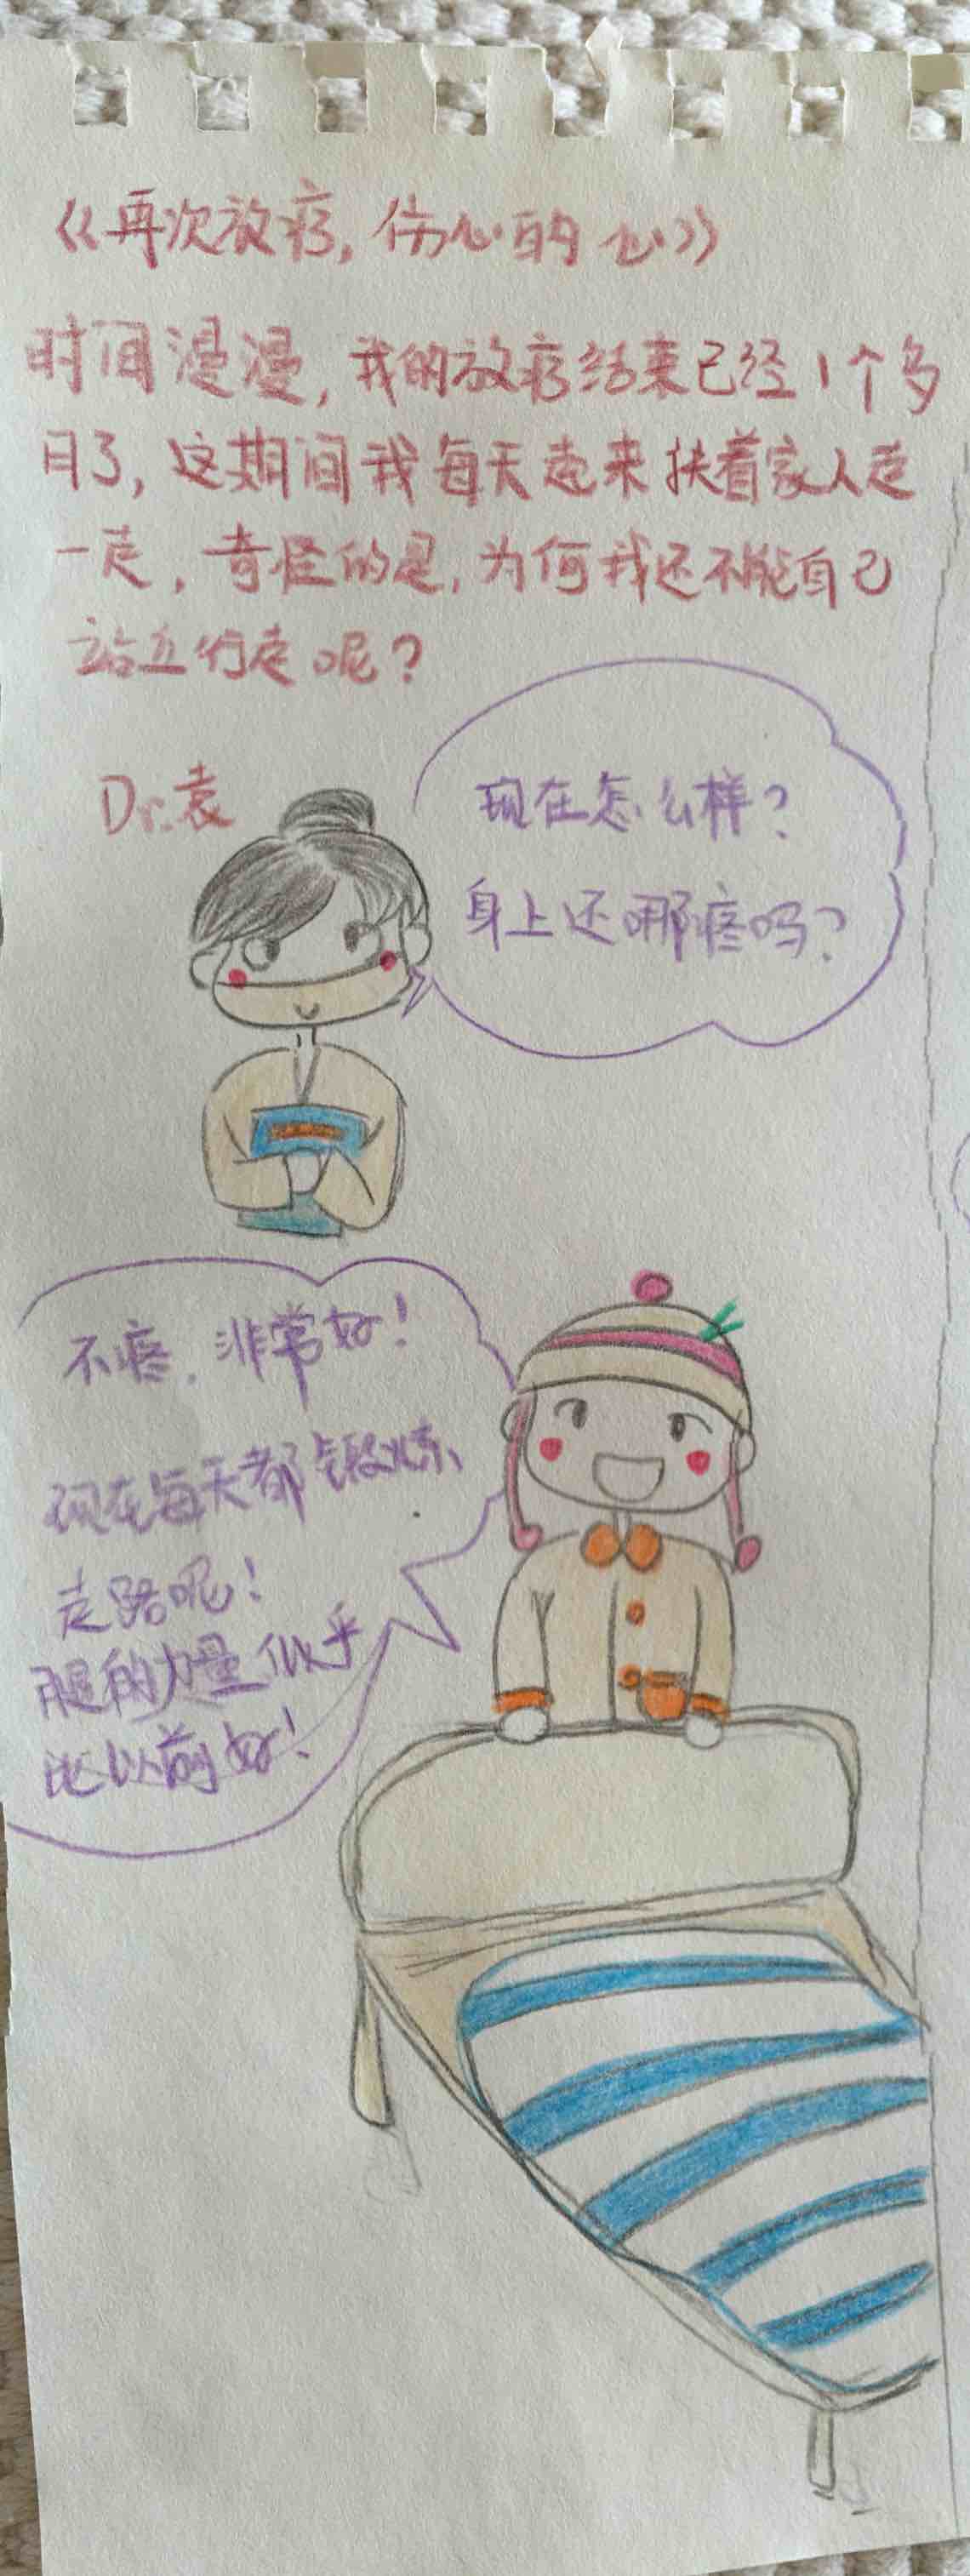 《再次放疗，伤心的心》
时间漫漫，我的放疗结束已经1个多
月了，这期间我每天起来扶着家人走
一走，奇怪的是，为何我还不能自己
站立行走呢？
Dr.袁
现在怎么样？
身上还哪疼吗？
不疼，非常好！
现在每天都锻炼、
走路呢！
腿的力量似乎
比以前好！